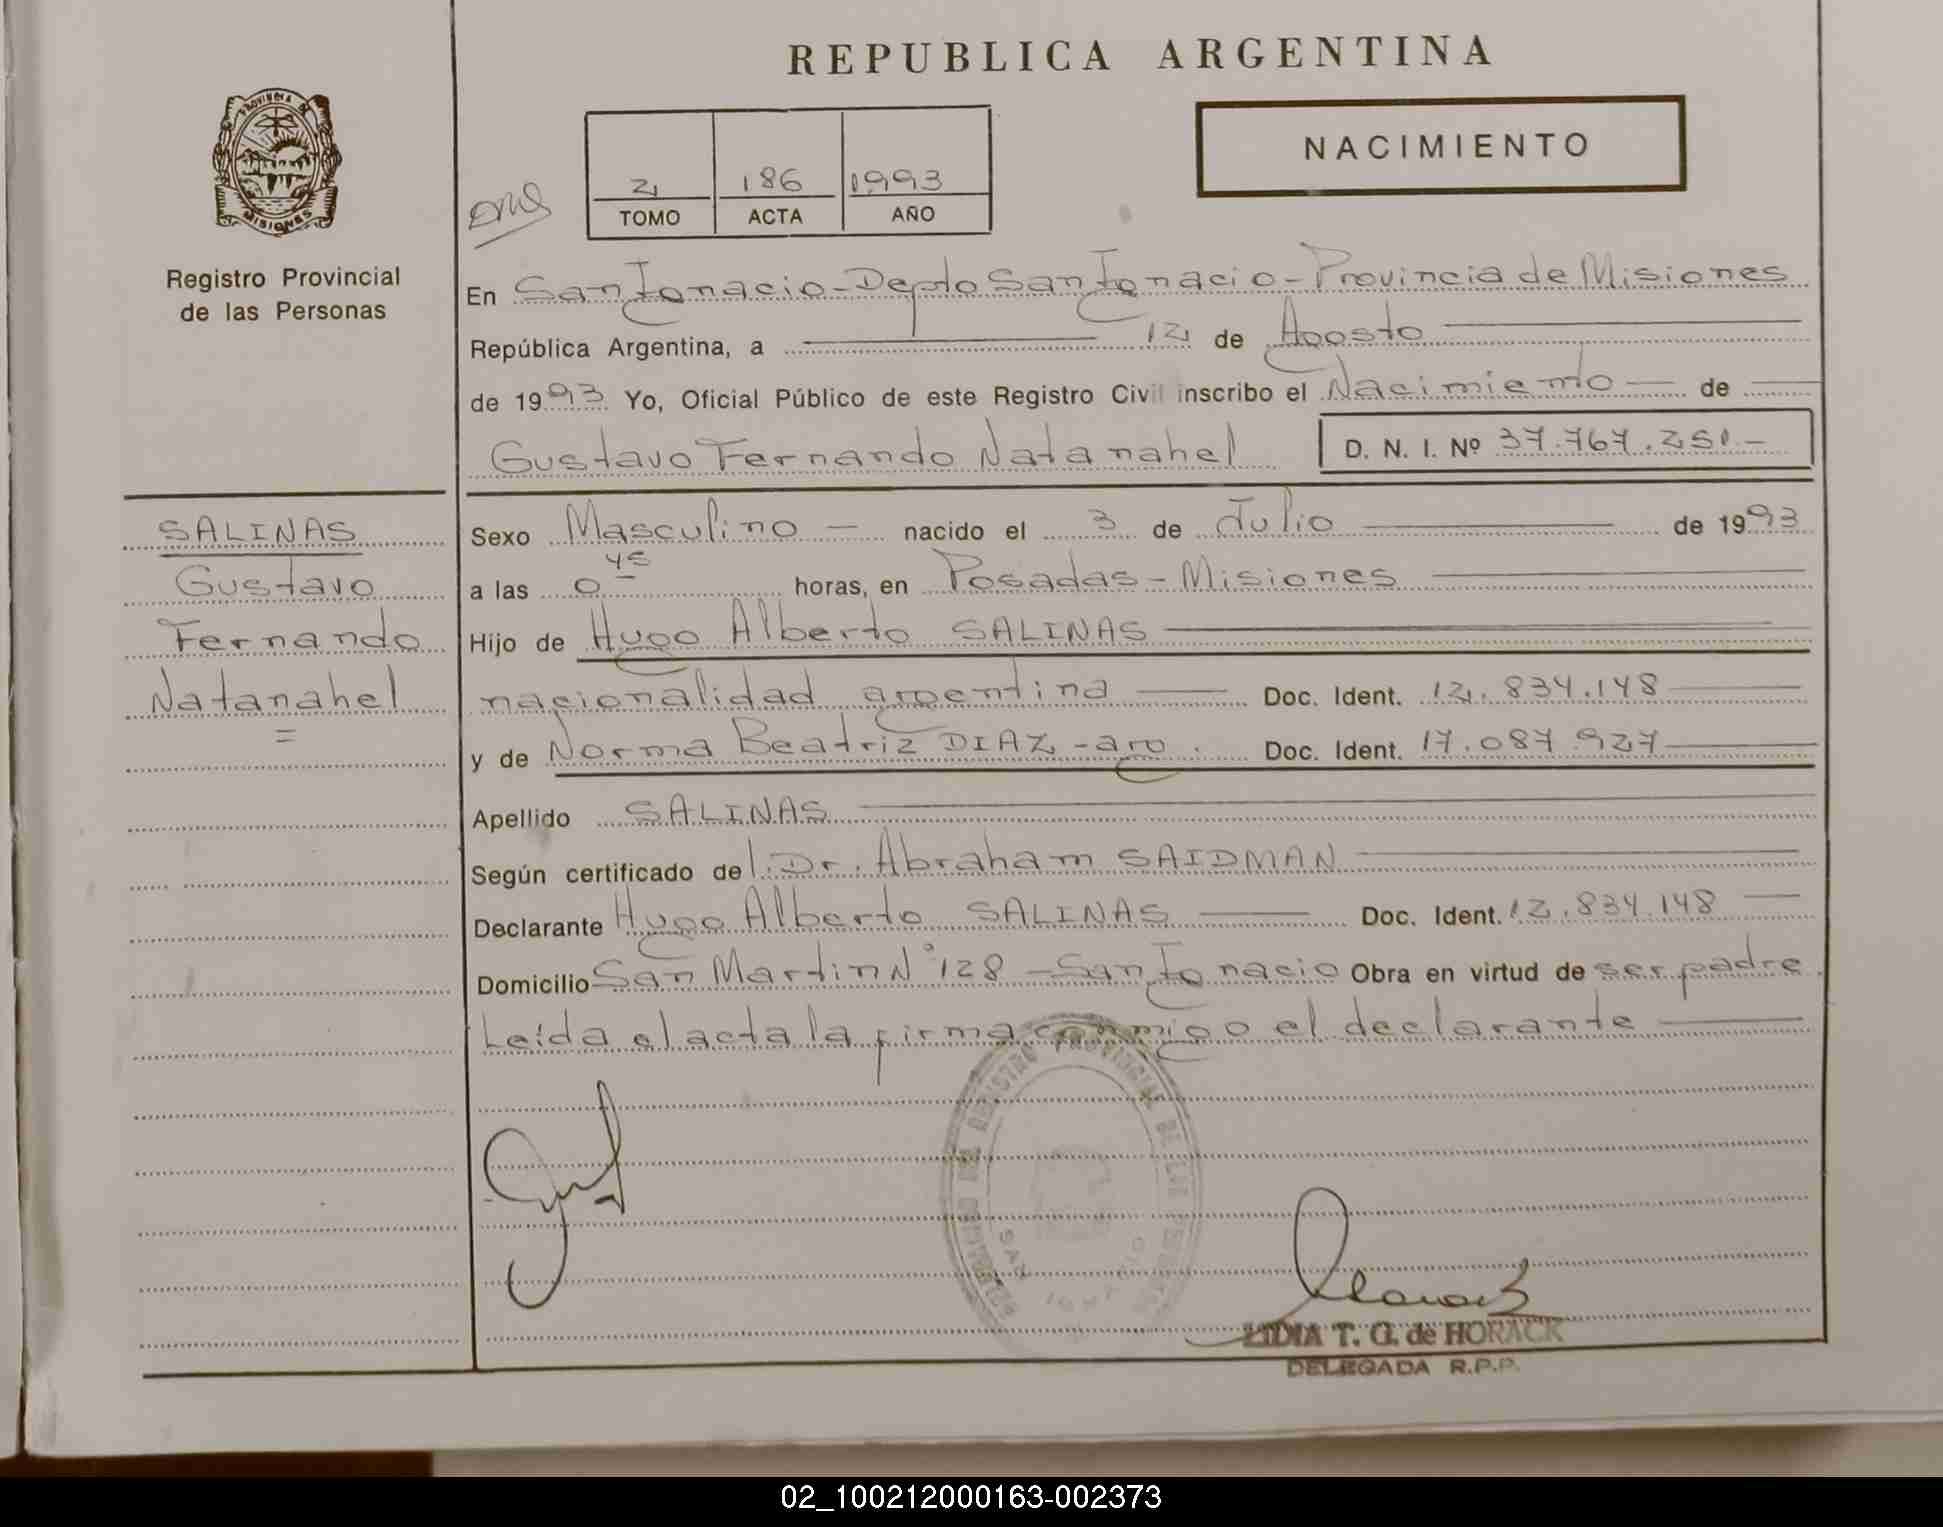 REPUBLICA ARGENTINA
NACIMIENTO
2 186 1993
TOMO ACTA AÑO
Registro Provincial
de las Personas
En San Ignacio - Depto San Ignacio - Provincia de Misiones
República Argentina, a 12 de Agosto
de 1993 Yo, Oficial Público de este Registro Civil inscribo el Nacimiento de
Gustavo Fernando Natanahel D. N. I. Nº 37.767.251.-
SALINAS
Gustavo
Fernando
Natanahel
Sexo Masculino - nacido el 3 de Julio de 1993
a las 0 45 horas, en Posadas - Misiones
Hijo de Hugo Alberto SALINAS
nacionalidad argentina Doc. Ident. 12.834.148
y de Norma Beatriz DIAZ - arg. Doc. Ident. 17.087.927
Apellido SALINAS
Según certificado del Dr. Abraham SAIDMAN
Declarante Hugo Alberto SALINAS Doc. Ident. 12.834.148
Domicilio San Martin Nº 128 - San Ignacio Obra en virtud de ser padre
Leída el acta la firma conmigo el declarante
REGISTRO PROVINCIAL DE LAS PERSONAS
LIDIA T. G. de HORACK
DELEGADA R.P.P.
02_100212000163-002373